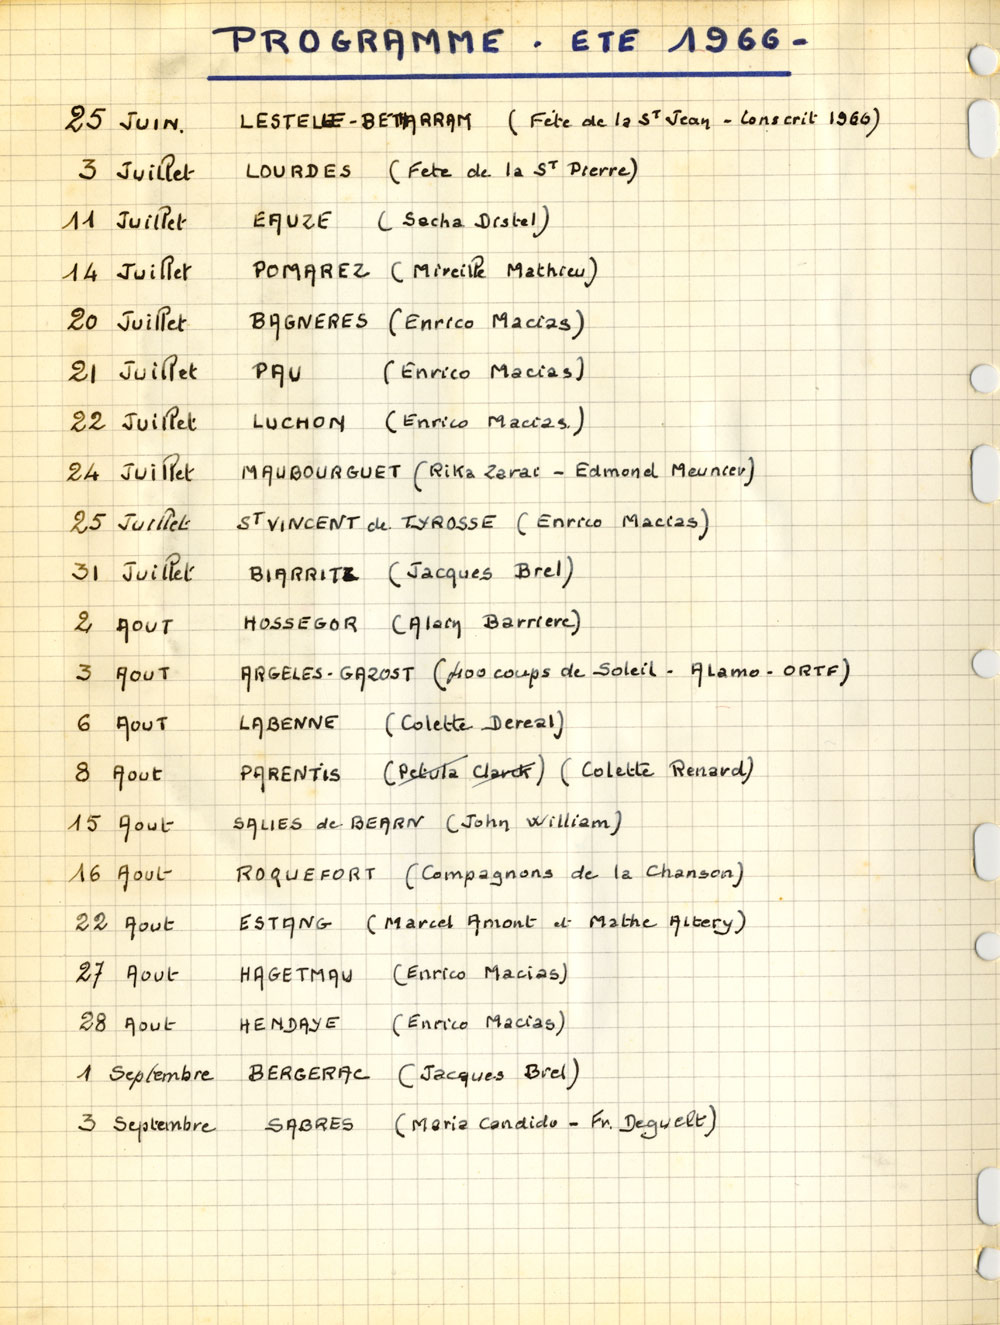 PROGRAMME . ETE 1966 -
25 JUIN. LESTELLE-BETHARRAM (Fête de la ST Jean - Conscrit 1966)
3 Juillet LOURDES (Fete de la ST Pierre)
11 Juillet EAUZE (Sacha Distel)
14 Juillet POMAREZ (Mireille Mathieu)
20 Juillet BAGNERES (Enrico Macias)
21 Juillet PAU (Enrico Macias)
22 Juillet LUCHON (Enrico Macias.)
24 Juillet MAUBOURGUET (Rika Zarai - Edmond Meunier)
25 Juillet ST VINCENT de TYROSSE (Enrico Macias)
31 Juillet BIARRITZ (Jacques Brel)
2 AOUT HOSSEGOR (Alain Barriere)
3 AOUT ARGELES-GAZOST (400 coups de Soleil - Alamo - ORTF)
6 AOUT LABENNE (Colette Dereal)
8 Aout PARENTIS (Petula Clarck) (Colette Renard)
15 Aout SALIES de BEARN (John William)
16 Aout ROQUEFORT (Compagnons de la Chanson)
22 Aout ESTANG (Marcel Amont et Mathe Altery)
27 Aout HAGETMAU (Enrico Macias)
28 Aout HENDAYE (Enrico Macias)
1 Septembre BERGERAC (Jacques Brel)
3 Septembre SABRES (Maria Candido - Fr. Deguelt)